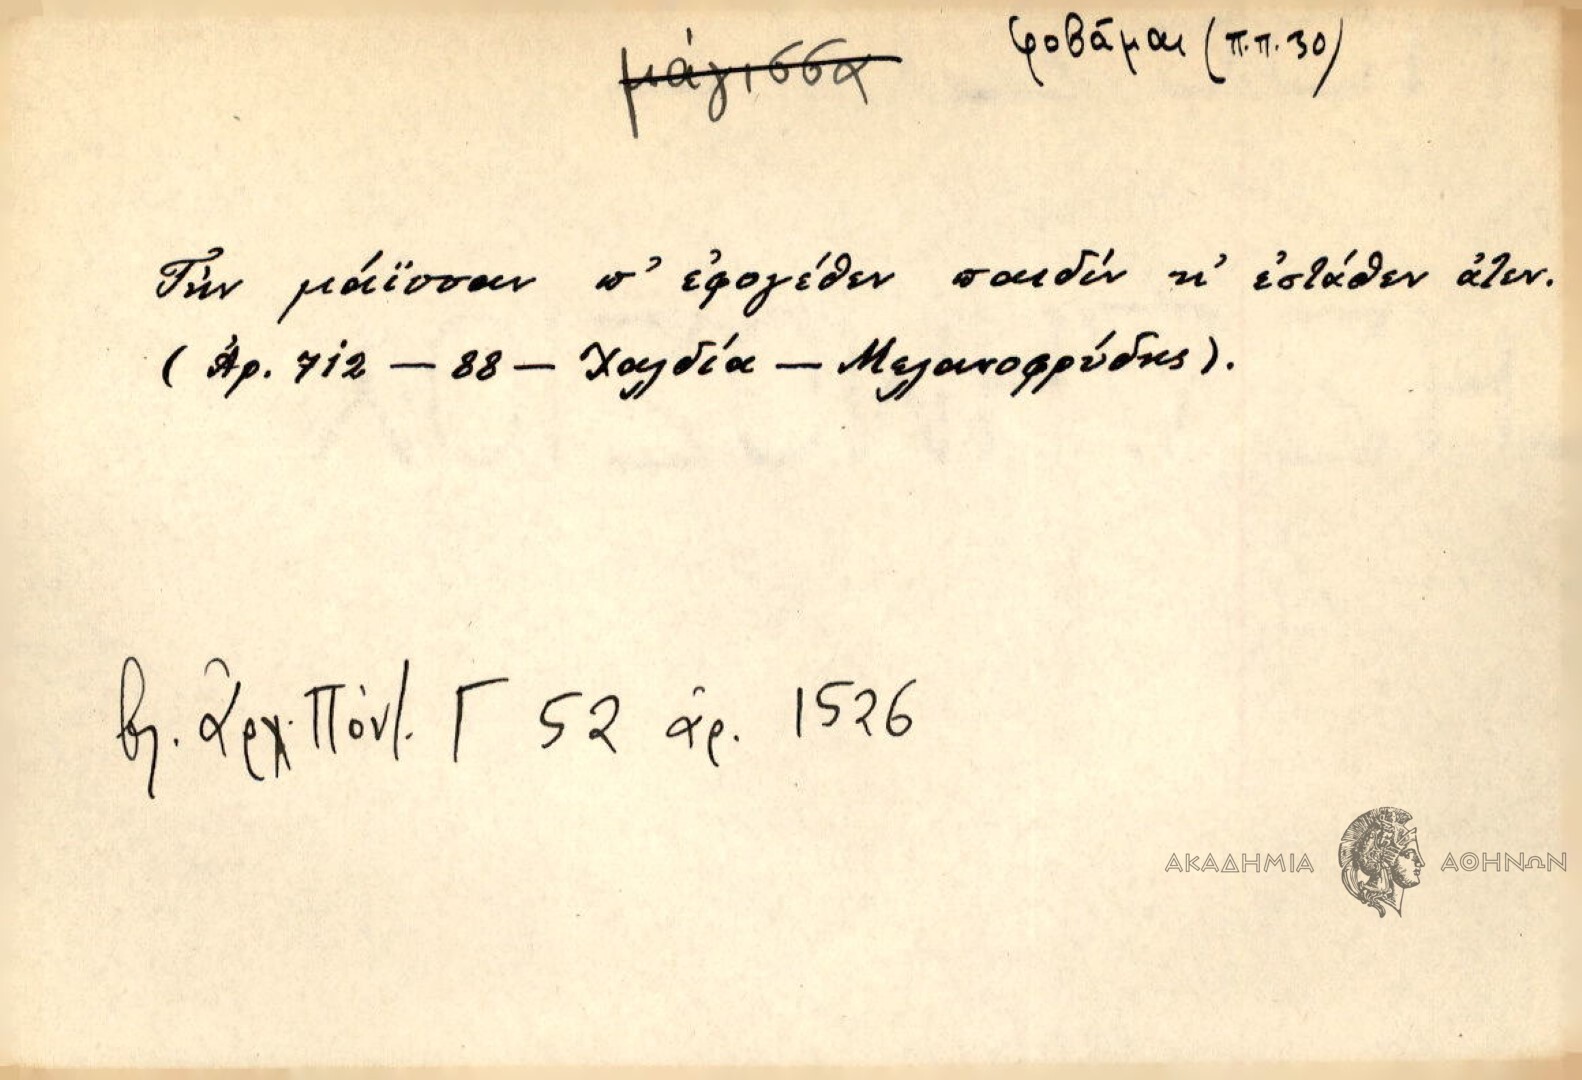 μάγισσα φοβᾶμαι (π.π. 30)
Τὴν μάϊσσαν π' ἐφογέθεν παιδὶν κ' ἐστάθεν ἀτεν.
(Ἀρ. 712 — 88 — Χαλδία — Μελανοφρύδης).
βλ. Ἀρχ. Πόντ. Γ 52 ἀρ. 1526
ΑΚΑΔΗΜΙΑ ΑΘΗΝΩΝ